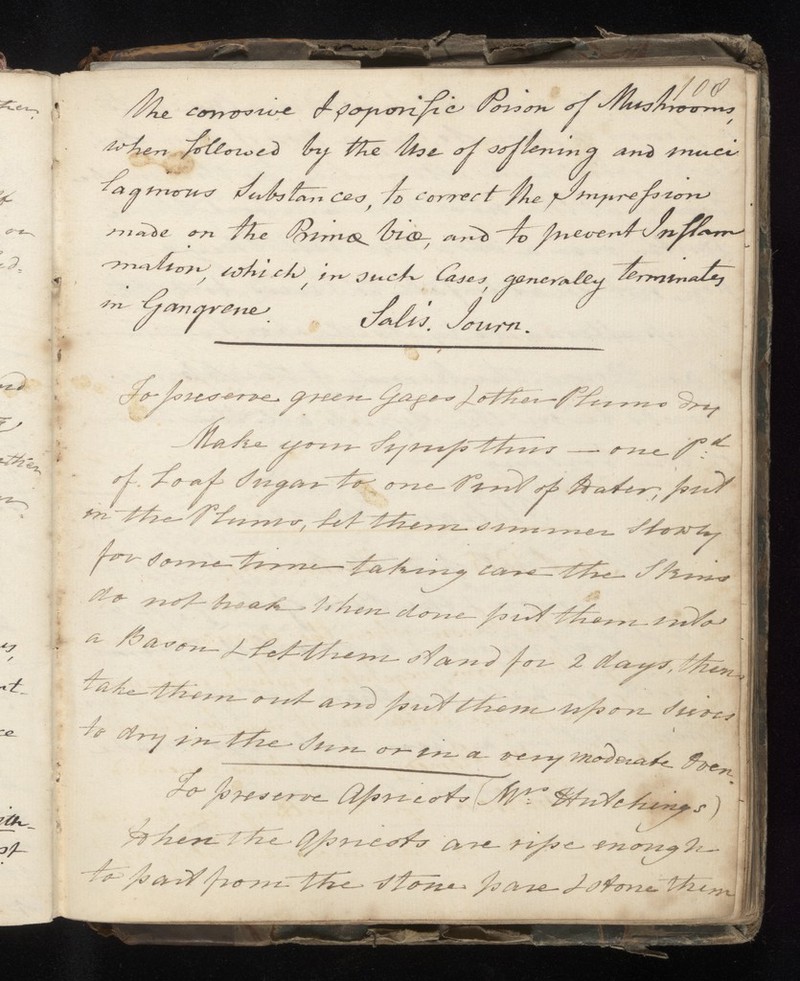 108
the corrosive & soporific Poison of Mushrooms,
when followed by the Use of softening and muci
laginous Substances, to correct the Impression
made on the Primæ viæ, and to prevent Inflam
mation, which, in such Cases, generally terminates
in Gangrene. Salis. Journ.
To preserve green Gages & other Plums dry
Make your Syrup thus — one Pd
of Loaf Sugar to one Pint of Water, put
in the Plums, let them simmer slowly
for some time taking care the Skins
do not break when done put them into
a Bason & let them stand for 2 days, then
take them out and put them upon Sieves
to dry in the Sun or in a very moderate Oven.
To preserve Apricots (Mrs. Hutchings)
When the Apricots are ripe enough
to part from the stone pare & stone them